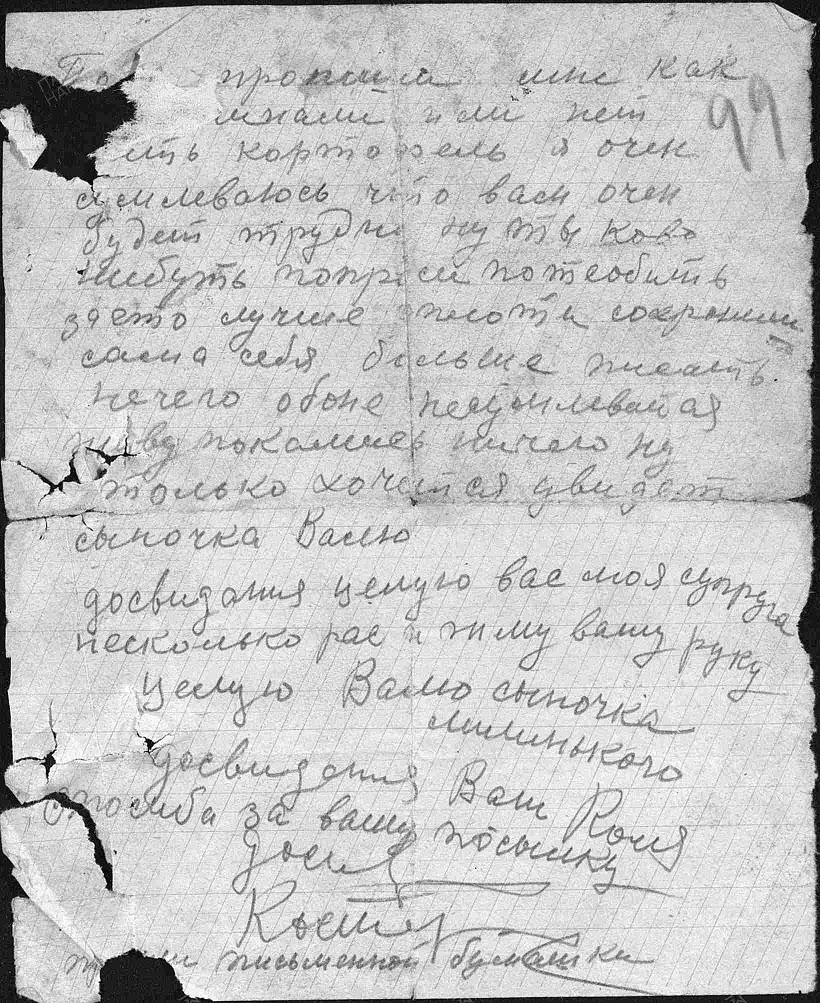 пропиши мне как
99
или нет
картофель я очен
сумлеваюсь что вам очен
будет трудно ну ты ково
нибуть попроси пособить
зэто лучше сохрони
сама себя больше писать
нечего обоне несумлевайся
живу покамись ничего ну
только хочется увидет
сыночка Валю
досвидания целую вас моя супруга
несколько рас и жму вашу руку
целую Валю сыночка
милинького
досвидания Ваш Коля
спосиба за вашу посылку
письменной бумашки